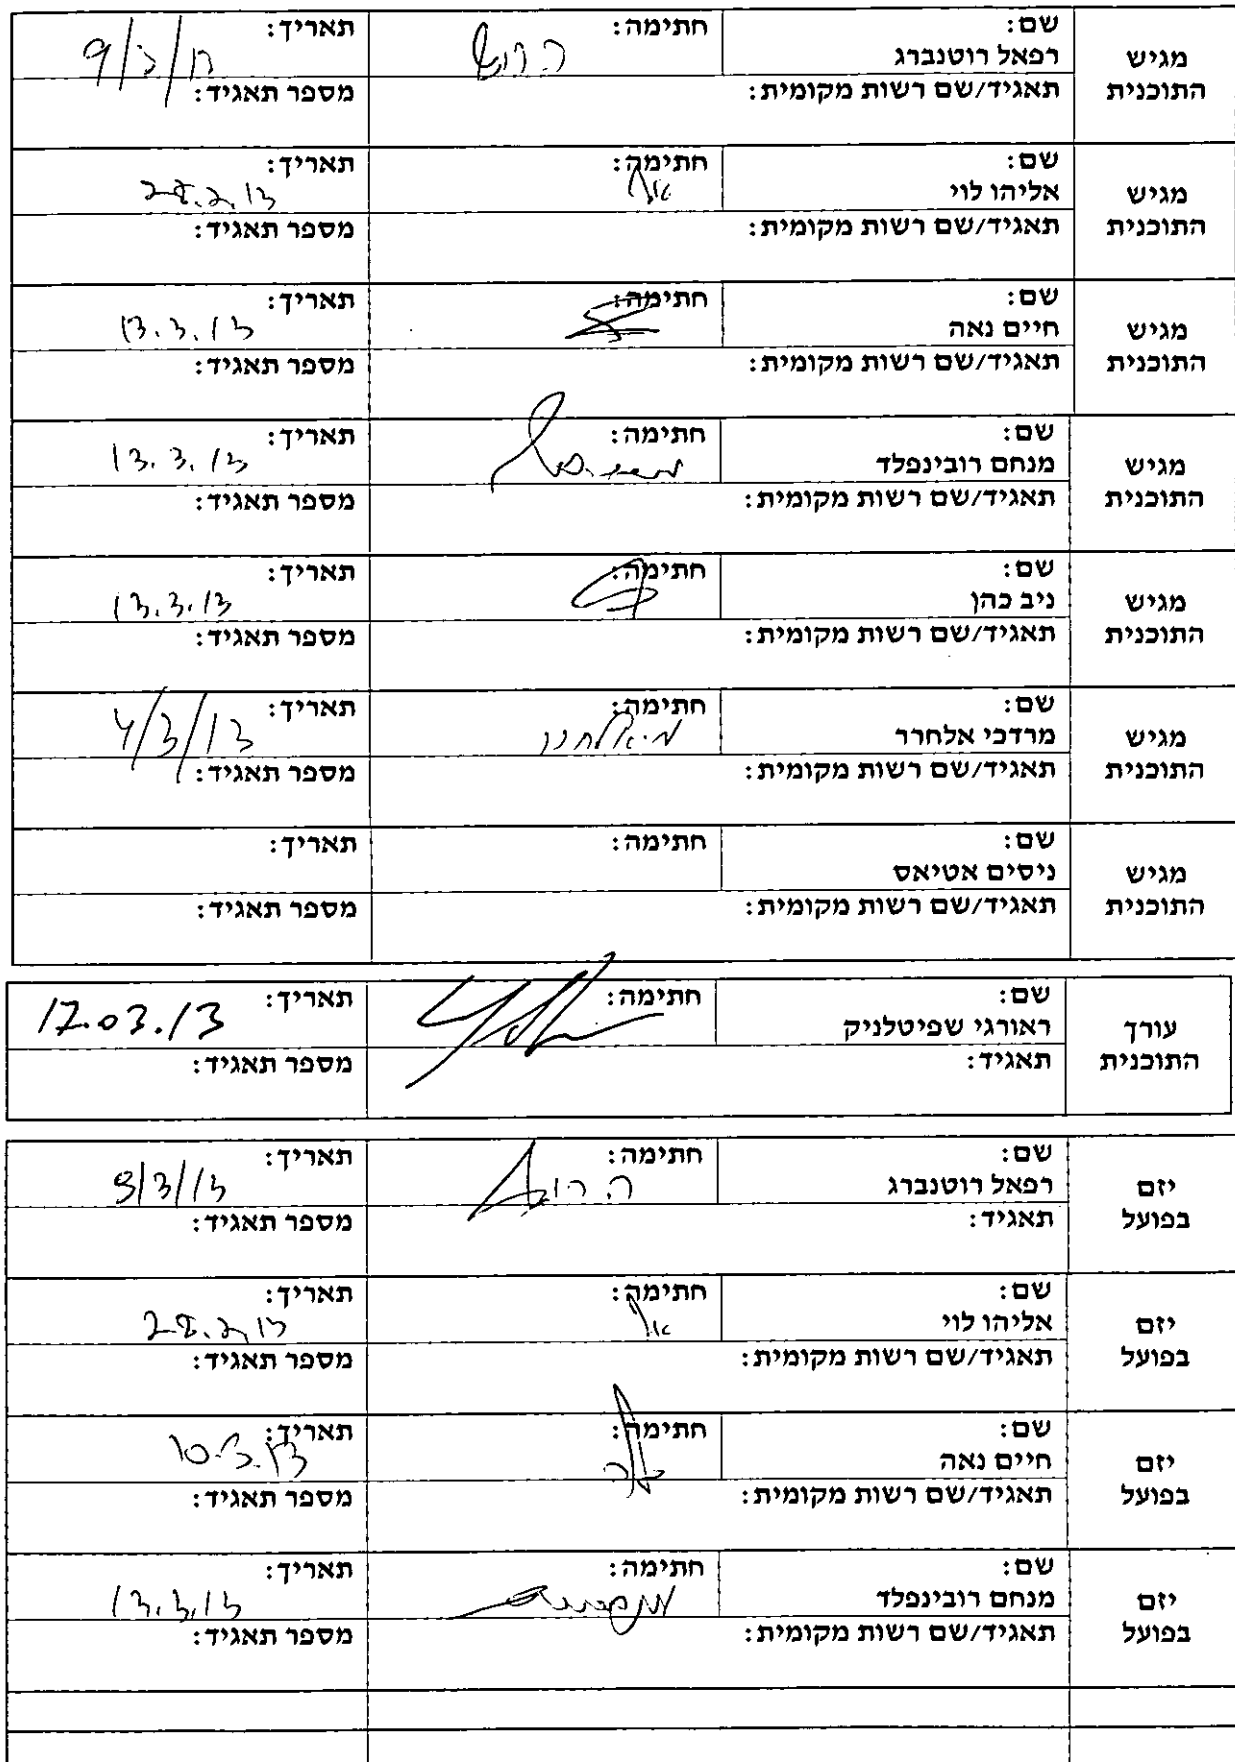 מגיש התוכנית
שם: רפאל רוטנברג
חתימה:
תאריך: 9/3/13
תאגיד/שם רשות מקומית:
מספר תאגיד:
מגיש התוכנית
שם: אליהו לוי
חתימה:
תאריך: 28.2.13
תאגיד/שם רשות מקומית:
מספר תאגיד:
מגיש התוכנית
שם: חיים נאה
חתימה:
תאריך: 13.3.13
תאגיד/שם רשות מקומית:
מספר תאגיד:
מגיש התוכנית
שם: מנחם רובינפלד
חתימה:
תאריך: 13.3.13
תאגיד/שם רשות מקומית:
מספר תאגיד:
מגיש התוכנית
שם: ניב כהן
חתימה:
תאריך: 13.3.13
תאגיד/שם רשות מקומית:
מספר תאגיד:
מגיש התוכנית
שם: מרדכי אלחרר
חתימה:
תאריך: 4/3/13
תאגיד/שם רשות מקומית:
מספר תאגיד:
מגיש התוכנית
שם: ניסים אטיאס
חתימה:
תאריך:
תאגיד/שם רשות מקומית:
מספר תאגיד:
עורך התוכנית
שם: ראורגי שפיטלניק
חתימה:
תאריך: 17.03.13
תאגיד:
מספר תאגיד:
יזם בפועל
שם: רפאל רוטנברג
חתימה:
תאריך: 9/3/13
תאגיד:
מספר תאגיד:
יזם בפועל
שם: אליהו לוי
חתימה:
תאריך: 28.2.13
תאגיד/שם רשות מקומית:
מספר תאגיד:
יזם בפועל
שם: חיים נאה
חתימה:
תאריך: 10.3.13
תאגיד/שם רשות מקומית:
מספר תאגיד:
יזם בפועל
שם: מנחם רובינפלד
חתימה:
תאריך: 13.3.13
תאגיד/שם רשות מקומית:
מספר תאגיד: